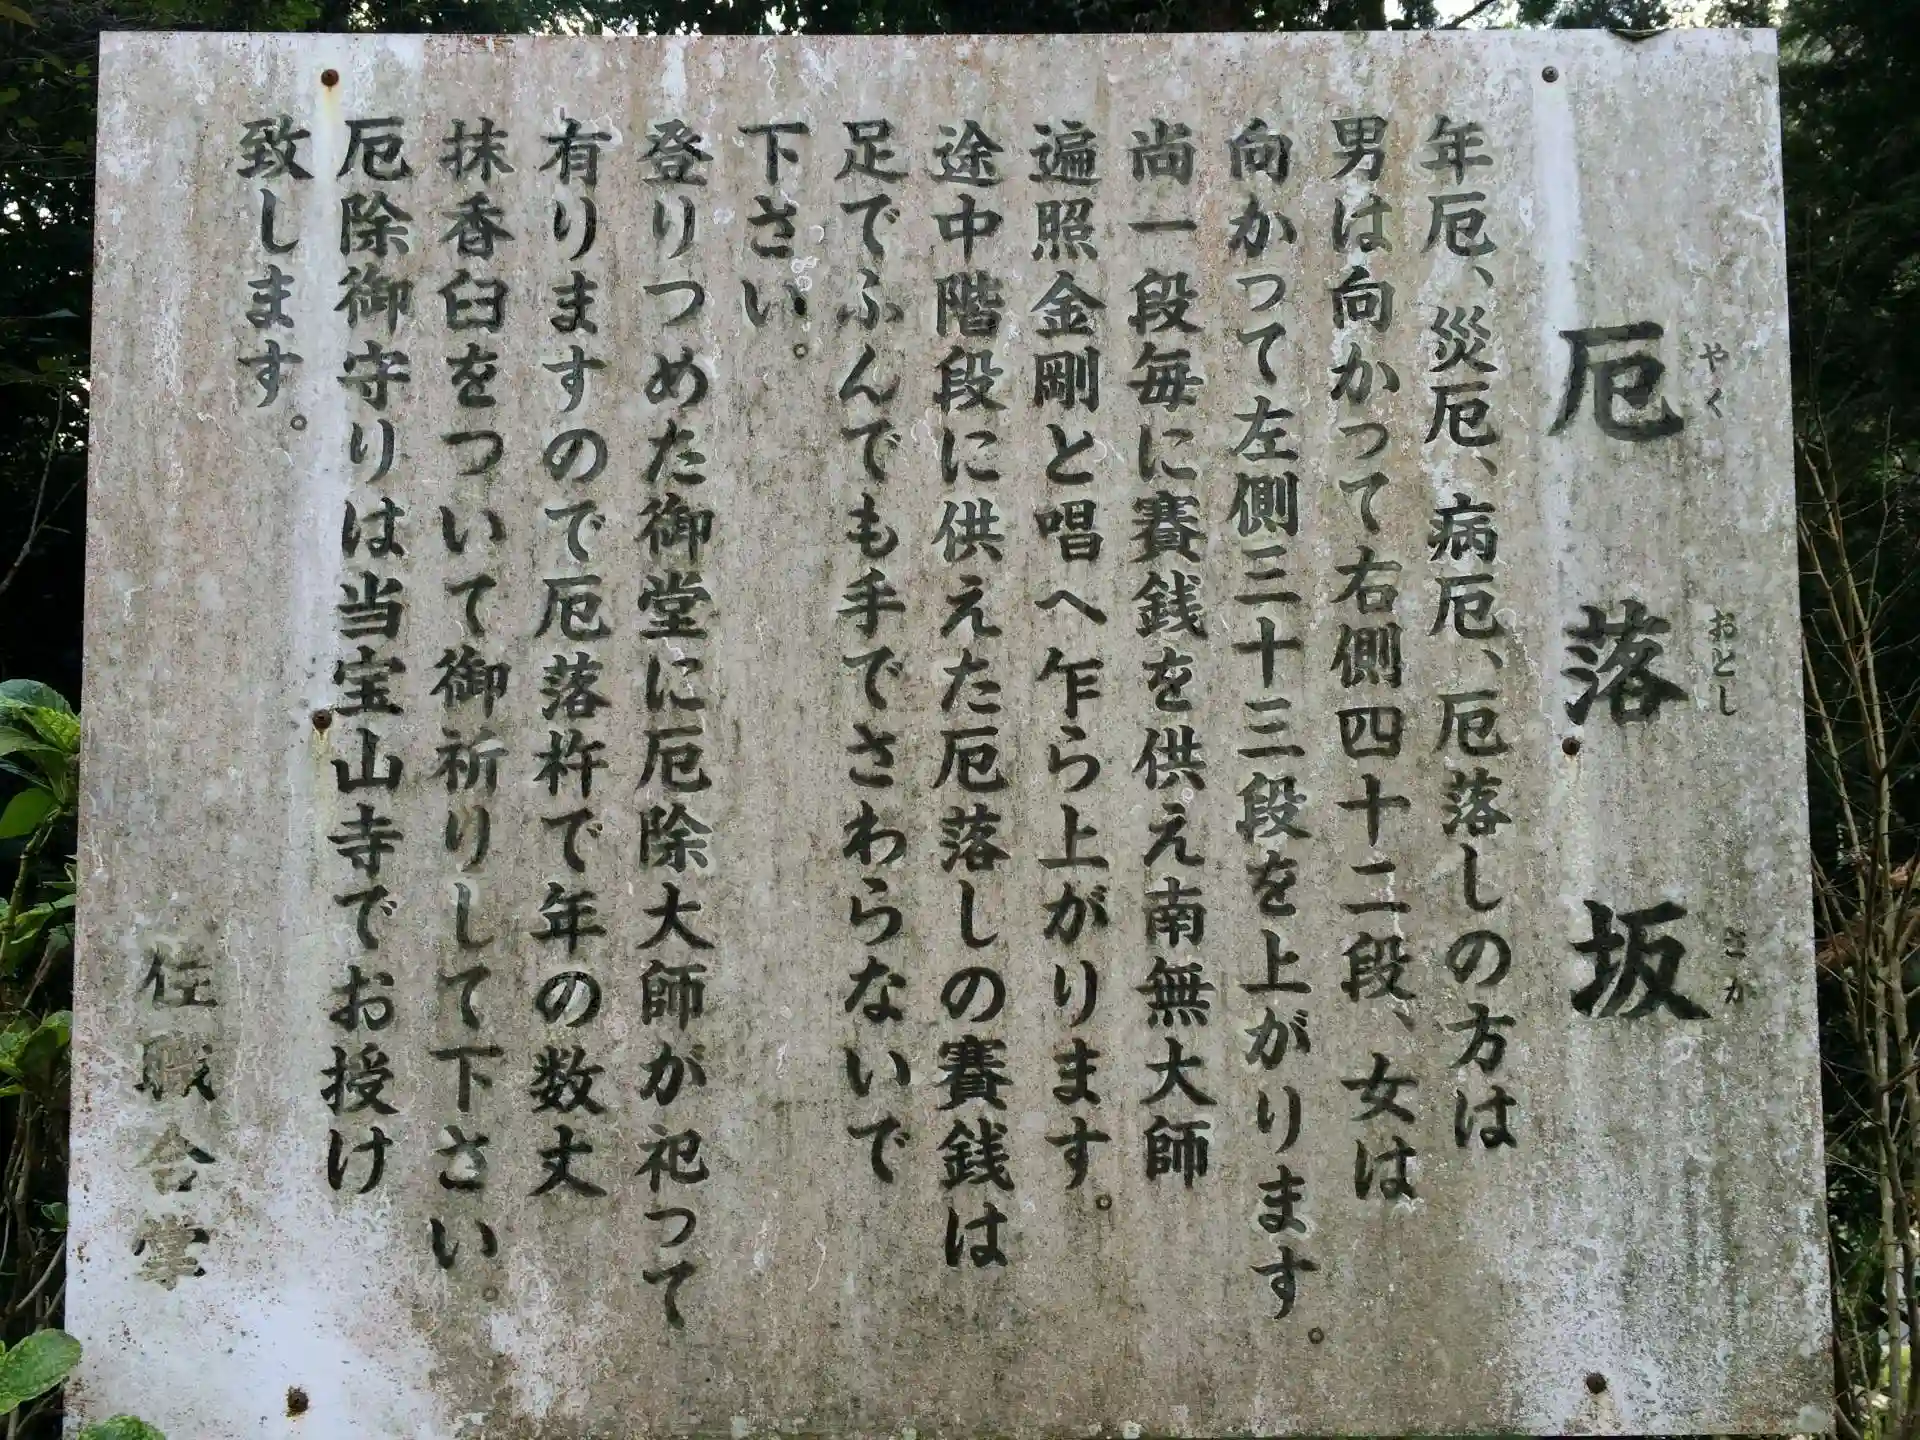 厄落坂
やく おとし さか
年厄、災厄、病厄、厄落しの方は
男は向かって右側四十二段、女は
向かって左側三十三段を上がります。
尚一段毎に賽銭を供え南無大師
遍照金剛と唱へ乍ら上がります。
途中階段に供えた厄落しの賽銭は
足でふんでも手でさわらないで
下さい。
登りつめた御堂に厄除大師が祀って
有りますので厄落杵で年の数丈
抹香臼をついて御祈りして下さい。
厄除御守りは当宝山寺でお授け
致します。
住職合掌